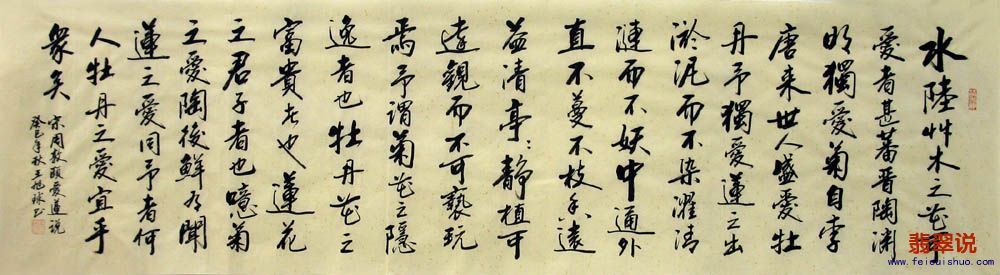 水陸艸木之花可
愛者甚蕃晋陶渊
明獨愛菊自李
唐来世人盛愛牡
丹予獨愛蓮之出
淤泥而不染濯清
漣而不妖中通外
直不蔓不枝香遠
益清亭〻静植可
遠觀而不可褻玩
焉予謂菊花之隱
逸者也牡丹花之
富貴者也蓮花
之君子者也噫菊
之愛陶後鮮有聞
蓮之愛同予者何
人牡丹之愛宜乎
衆矣
宋周敦頤愛蓮说
癸巳年秋王旭球书
翡翠说
www.feicuishuo.com